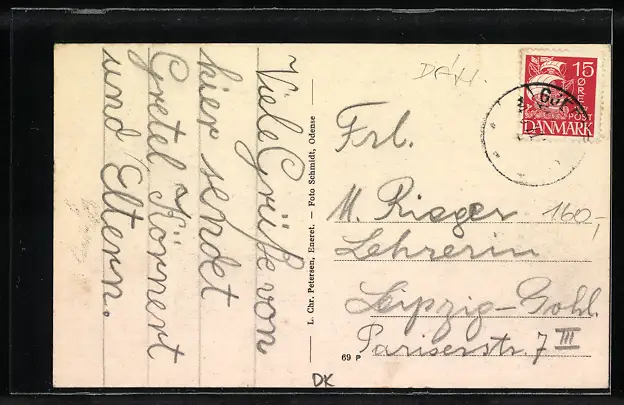 Viele Grüße von
hier sendet
Gretel Körnert
und Eltern.
L. Chr. Petersen, Eneret. — Foto Schmidt, Odense
69 P
DK
DÄN.
15
ØRE
POST
DANMARK
Frl.
M. Rieger
160,-
Lehrerin
Leipzig-Gohl.
Pariserstr. 7 III